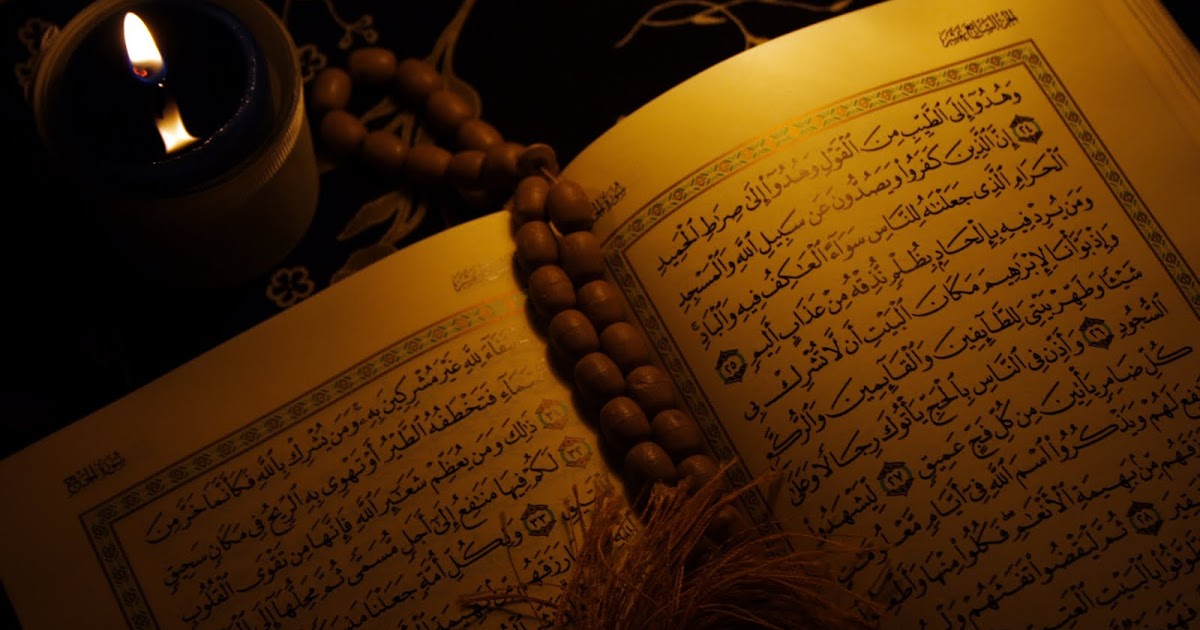 الجزء السابع عشر
وَهُدُوٓا۟ إِلَى ٱلطَّيِّبِ مِنَ ٱلْقَوْلِ وَهُدُوٓا۟ إِلَىٰ صِرَٰطِ ٱلْحَمِيدِ
٢٤ إِنَّ ٱلَّذِينَ كَفَرُوا۟ وَيَصُدُّونَ عَن سَبِيلِ ٱللَّهِ وَٱلْمَسْجِدِ
ٱلْحَرَامِ ٱلَّذِى جَعَلْنَٰهُ لِلنَّاسِ سَوَآءً ٱلْعَٰكِفُ فِيهِ وَٱلْبَادِ ۚ
وَمَن يُرِدْ فِيهِ بِإِلْحَادٍۭ بِظُلْمٍ نُّذِقْهُ مِنْ عَذَابٍ أَلِيمٍ ٢٥
وَإِذْ بَوَّأْنَا لِإِبْرَٰهِيمَ مَكَانَ ٱلْبَيْتِ أَن لَّا تُشْرِكْ بِى
شَيْـًٔا وَطَهِّرْ بَيْتِىَ لِلطَّآئِفِينَ وَٱلْقَآئِمِينَ وَٱلرُّكَّعِ
ٱلسُّجُودِ ٢٦ وَأَذِّن فِى ٱلنَّاسِ بِٱلْحَجِّ يَأْتُوكَ رِجَالًا وَعَلَىٰ
كُلِّ ضَامِرٍ يَأْتِينَ مِن كُلِّ فَجٍّ عَمِيقٍ ٢٧ لِّيَشْهَدُوا۟
لَهُمْ وَيَذْكُرُوا۟ ٱسْمَ ٱللَّهِ فِىٓ أَيَّامٍ
مِّنۢ بَهِيمَةِ ٱلْأَنْعَٰمِ ۖ فَكُلُوا۟ مِنْهَا
٢٨ ثُمَّ لْيَقْضُوا۟ تَفَثَهُمْ
بِٱلْبَيْتِ
سُورَةُ الحَجِّ
لِلَّهِ غَيْرَ مُشْرِكِينَ بِهِۦ ۚ وَمَن يُشْرِكْ بِٱللَّهِ فَكَأَنَّمَا خَرَّ مِنَ
فَتَخْطَفُهُ ٱلطَّيْرُ أَوْ تَهْوِى بِهِ ٱلرِّيحُ فِى مَكَانٍ سَحِيقٍ
٣١ ذَٰلِكَ وَمَن يُعَظِّمْ شَعَٰٓئِرَ ٱللَّهِ فَإِنَّهَا مِن تَقْوَى ٱلْقُلُوبِ
٣٢ لَكُمْ فِيهَا مَنَٰفِعُ إِلَىٰٓ أَجَلٍ مُّسَمًّى ثُمَّ مَحِلُّهَآ إِلَى
٣٣ وَلِكُلِّ أُمَّةٍ جَعَلْنَا